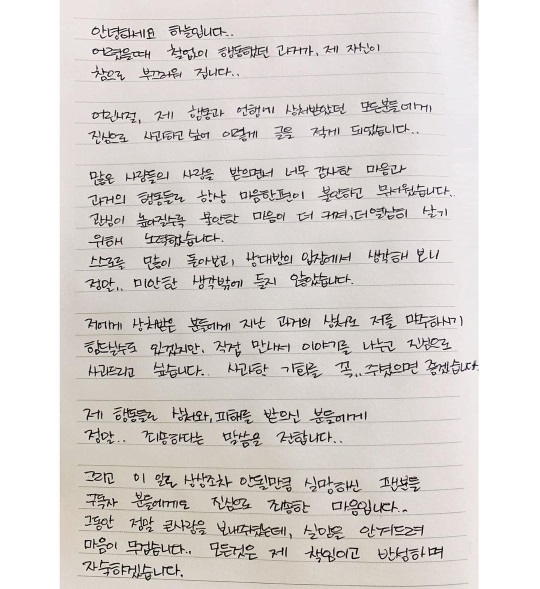 안녕하세요 하늘입니다..
어렸을때 철없이 행동했던 과거가, 제 자신이
참으로 부끄러워 집니다..
어린시절, 제 행동과 언행에 상처받았던 모든분들에게
진심으로 사과하고 싶어 이렇게 글을 적게 되었습니다..
많은 사람들의 사랑을 받으면서 너무 감사한 마음과
과거의 행동들로 항상 마음한편이 불안하고 무서웠습니다..
관심이 높아질수록 불안한 마음이 더 커져, 더열심히 살기
위해 노력했습니다.
스스로를 많이 돌아보고, 상대방의 입장에서 생각해 보니
정말.. 미안한 생각밖에 들지 않았습니다.
저에게 상처받은 분들에게 지난 과거의 상처로 저를 마주하시기
힘드실수도 있겠지만, 직접 만나서 이야기를 나누고 진심으로
사과드리고 싶습니다.. 사과할 기회를 꼭.. 주셨으면 좋겠습니다
제 행동들로 상처와, 피해를 받으신 분들에게
정말.. 죄송하다는 말씀을 전합니다..
그리고 이 일로 상상조차 안될만큼 실망하신 팬분들
구독자 분들에게도 진심으로 죄송한 마음입니다..
그동안 정말 큰사랑을 보내주셨는데, 실망을 안겨드려
마음이 무겁습니다.. 모든것은 제 책임이고 반성하며
자숙하겠습니다.